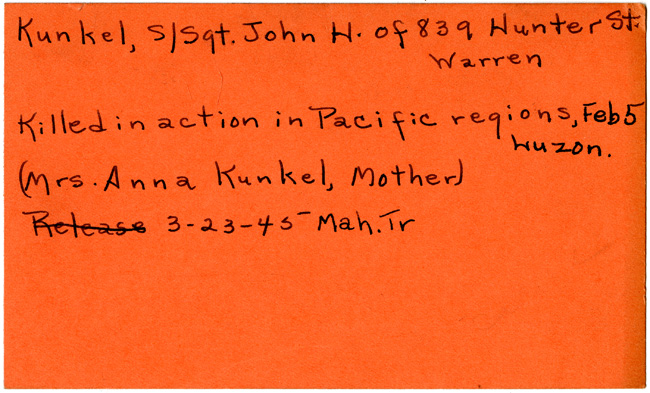 Kunkel, S/Sgt. John H. of 839 Hunter St.
Warren
Killed in action in Pacific regions, Feb 5
Luzon.
(Mrs. Anna Kunkel, Mother)
Release 3-23-45 Mah. Tr